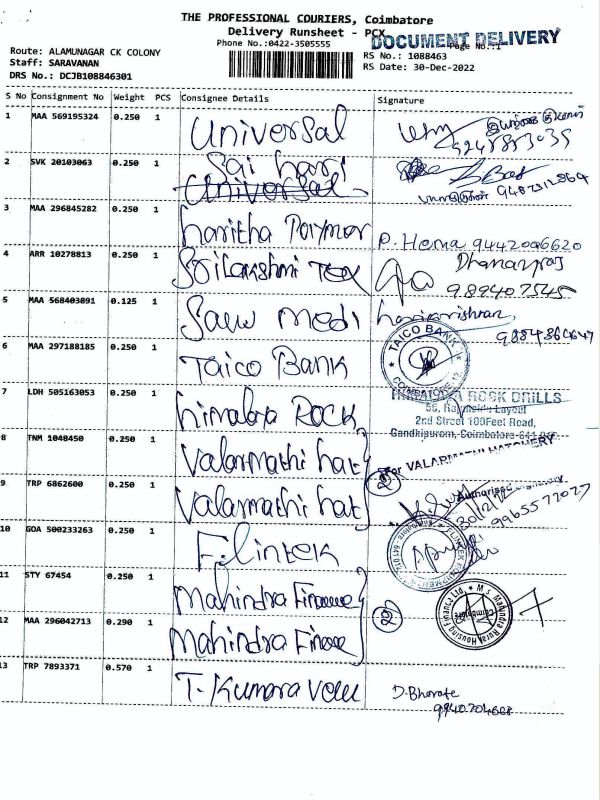 THE PROFESSIONAL COURIERS, Coimbatore
Delivery Runsheet - PCX
DOCUMENT DELIVERY
Phone No.:0422-3505555
Page No.:1
Route: ALAMUNAGAR CK COLONY
RS No.: 1088463
Staff: SARAVANAN
RS Date: 30-Dec-2022
DRS No.: DCJB108846301
S No Consignment No Weight PCS Consignee Details Signature
1 MAA 569195324 0.250 1 Universal
2 SVK 20103063 0.250 1 Sai hari
Universal
9487312869
3 MAA 296845282 0.250 1 haritha Polymer P. Hema 9442096620
4 ARR 10278813 0.250 1 Srilakshmi TEX Dhanarraj
989407545
5 MAA 568403891 0.125 1 Saw medi harikrishnan
9884864647
6 MAA 297188185 0.250 1 Taico BANK TAICO BANK
COIMBATORE-12
7 LDH 505163053 0.250 1 himalaya ROCK ROCK DRILLS
56, Layout
2nd Street 100Feet Road,
Gandhipuram, Coimbatore-641012
8 TNM 1048450 0.250 1 Valarmathi hat For VALARMATHI HATCHERY
2
9 TRP 6862600 0.250 1 Valarmathi hat Authorised
30/12/22 9965577027
10 GOA 500233263 0.250 1 Flintek
11 STY 67454 0.250 1 Mahindra Finance
2
Mahindra Rural Housing Finance Ltd.,
Coimbatore
12 MAA 296042713 0.290 1 Mahindra Finance
13 TRP 7893371 0.570 1 T. Kumaravelu D. Bharate
9940704608